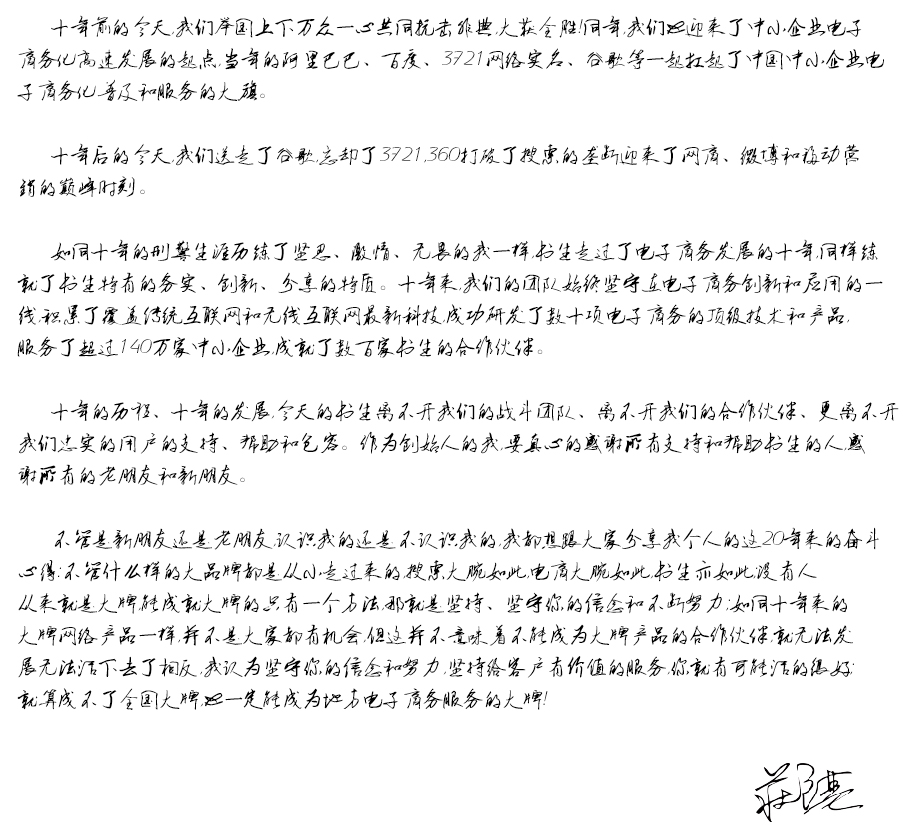 十年前的今天,我们举国上下万众一心共同抗击非典,大获全胜!同年,我们也迎来了中小企业电子
商务化高速发展的起点,当年的阿里巴巴、百度、3721网络实名、谷歌等一起扛起了中国中小企业电
子商务化普及和服务的大旗。
十年后的今天,我们送走了谷歌,忘却了3721,360打破了搜索的垄断,迎来了网店、微博和移动营
销的巅峰时刻。
如同十年的刑警生涯历练了坚忍、激情、无畏的我一样,书生走过了电子商务发展的十年,同样练
就了书生特有的务实、创新、分享的特质。十年来,我们的团队始终坚守在电子商务创新和应用的一
线,积累了覆盖传统互联网和无线互联网最新科技,成功研发了数十项电子商务的顶级技术和产品,
服务了超过140万家中小企业,成就了数百家书生的合作伙伴。
十年的历程、十年的发展,今天的书生离不开我们的战斗团队、离不开我们的合作伙伴、更离不开
我们忠实的用户的支持、帮助和包容。作为创始人的我,要真心的感谢所有支持和帮助书生的人,感
谢所有的老朋友和新朋友。
不管是新朋友还是老朋友,认识我的还是不认识我的,我都想跟大家分享我个人的这20年来的奋斗
心得:不管什么样的大品牌都是从小走过来的,搜索大腕如此,电商大腕如此,书生亦如此,没有人
从来就是大牌,能成就大牌的只有一个方法,那就是坚持、坚守你的信念和不断努力;如同十年来的
大牌网络产品一样,并不是大家都有机会,但这并不意味着不能成为大牌产品的合作伙伴,就无法发
展无法活下去了,相反,我认为坚守你的信念和努力,坚持给客户有价值的服务,你就有可能活的很好;
就算成不了全国大牌,也一定能成为地方电子商务服务的大牌!